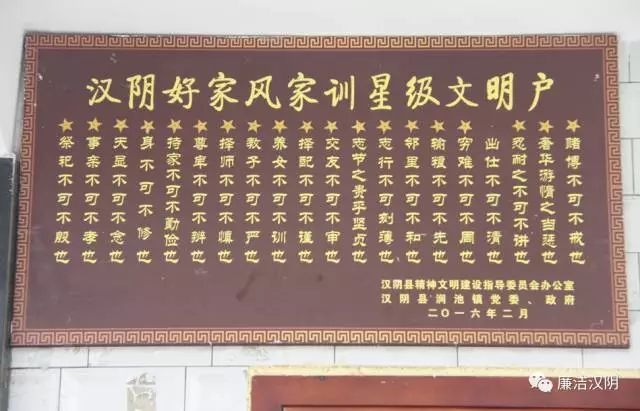 汉阴好家风家训星级文明户
祭祀不可不殷也
事亲不可不孝也
天显不可不念也
身不可不修也
持家不可不勤俭也
尊卑不可不辨也
择师不可不慎也
教子不可不严也
养女不可不训也
择配不可不谨也
交友不可不审也
志节之贵乎坚贞也
志行不可刻薄也
邻里不可不和也
输粮不可不先也
穷难不可不周也
出仕不可不清也
忍耐之不可不讲也
奢华游惰之当惩也
赌博不可不戒也
汉阴县精神文明建设指导委员会办公室
汉阴县涧池镇党委、政府
二〇一六年二月
廉洁汉阴